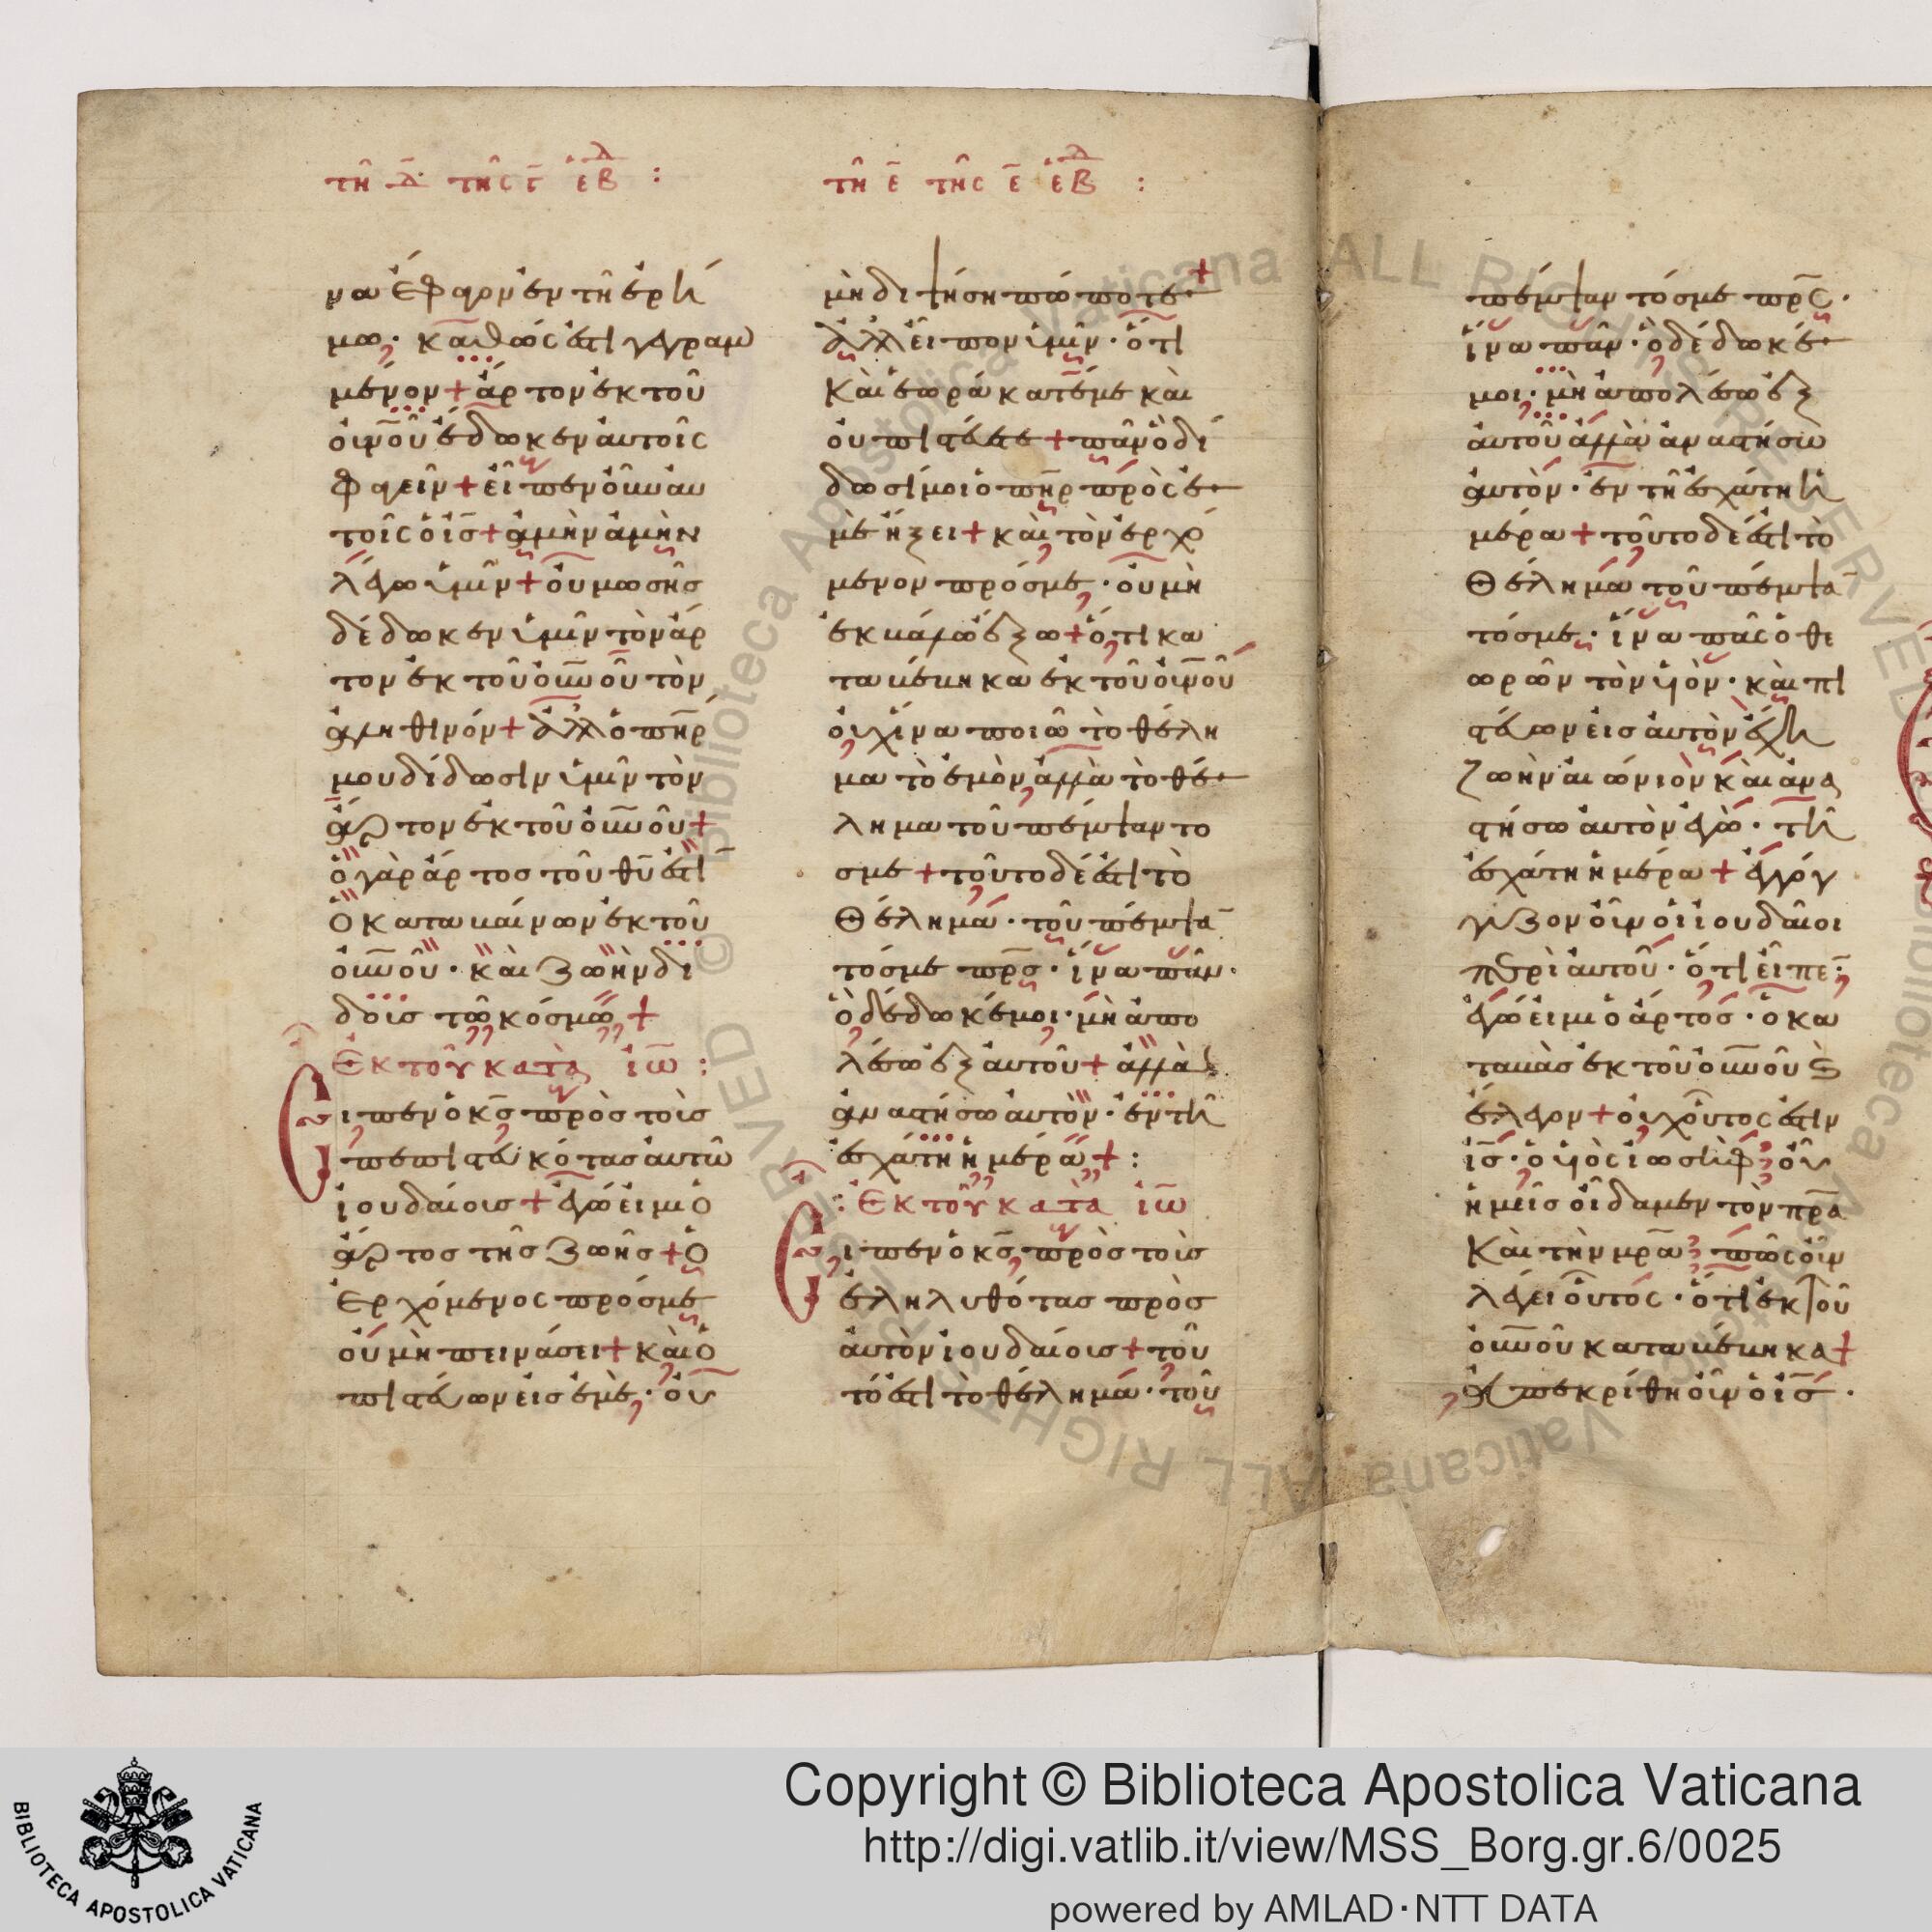 τῆ δ̄ τῆς γ̄ ἑβδ :
να ἔφαγον ἐν τῆ ἐρή
μω· καθώς ἐστι γεγραμ
μένον + ἄρτον ἐκ τοῦ
οὐνοῦ ἔδωκεν αὐτοῖς
φαγεῖν + εἶπεν οὖν αὐ
τοῖς ὁ ις + ἀμὴν ἀμὴν
λέγω ὑμῖν + οὐ μωσῆς
δέδωκεν ὑμῖν τὸν ἄρ
τον ἐκ τοῦ οὐνοῦ τὸν
ἀληθινόν + ἀλλ ὁ πηρ
μου δίδωσιν ὑμῖν τὸν
ἄρτον ἐκ τοῦ οὐνοῦ +
ὁ γὰρ ἄρτος τοῦ θυ ἐστὶ
ὁ καταβαίνων ἐκ τοῦ
οὐνοῦ· καὶ ζωὴν δι
δοὶς τῶ κόσμω +
Ἐκ τοῦ κατὰ ἰω :
Εἶπεν ὁ κς πρὸς τοὺς
πεπιστευκότας αὐτῶ
ἰουδαίοις + ἐγώ εἰμι ὁ
ἄρτος τῆς ζωῆς + ὁ
ἐρχόμενος πρός με
οὐ μὴ πεινάσει + καὶ ὁ
πιστεύων εἰς ἐμὲ· οὐ
τῆ ε̄ τῆς ε̄ ἑβδ :
μὴ διψήση πώποτε +
ἀλλ εἶπον ὑμῖν· ὅτι
καὶ ἑωράκατέ με καὶ
οὐ πιστεύετε + πᾶν ὃ δί
δωσί μοι ὁ πηρ πρὸς ἐ
μὲ ἥξει + καὶ τὸν ἐρχό
μενον πρός με· οὐ μὴ
ἐκβάλω ἔξω + ὅτι κα
ταβέβηκα ἐκ τοῦ οὐνοῦ
οὐχ ἵνα ποιῶ τὸ θέλη
μα τὸ ἐμὸν ἀλλὰ τὸ θέ
λημα τοῦ πέμψαντο
σμε + τοῦτο δέ ἐστι τὸ
θέλημα· τοῦ πέμψα
τός με πρς· ἵνα πᾶν·
ὃ δέδωκέ μοι· μὴ ἀπο
λέσω ἐξ αὐτοῦ + ἀλλὰ
ἀναστήσω αὐτὸν· ἐν τῆ
ἐσχάτη ἡμέρα + :
: Ἐκ τοῦ κατὰ ἰω
Εἶπεν ὁ κς πρὸς τοὺς
ἐληλυθότας πρὸς
αὐτὸν ἰουδαίοις + τοῦ
τό ἐστι τὸ θέλημα· τοῦ
πέμψαντός με πρς·
ἵνα πᾶν· ὃ δέδωκέ
μοι· μὴ ἀπολέσω ἐξ
αὐτοῦ ἀλλὰ ἀναστήσω
αὐτὸν· ἐν τῆ ἐσχάτη ἡ
μέρα + τοῦτο δέ ἐστι τὸ
θέλημα τοῦ πέμψα
τός με· ἵνα πᾶς ὁ θε
ωρῶν τὸν υἱὸν· καὶ πι
στεύων εἰς αὐτὸν ἔχη
ζωὴν αἰώνιον καὶ ἀνα
στήσω αὐτὸν ἐγὼ· τῆ
ἐσχάτη ἡμέρα + ἐγόγ
γυζον οὖν οἱ ἰουδαῖοι
περὶ αὐτοῦ· ὅτι εἶπε·
ἐγώ εἰμι ὁ ἄρτος· ὁ κα
ταβὰς ἐκ τοῦ οὐνοῦ ϗ
ἔλεγον + οὐχ οὗτος ἐστιν
ις· ὁ υἱὸς ἰωσὴφ; οὗ
ἡμεῖς οἴδαμεν τὸν πρα
καὶ τὴν μρα; πῶς οὖν
λέγει οὗτος· ὅτι ἐκ τοῦ
οὐνοῦ καταβέβηκα +
ἀπεκρίθη οὖν ὁ ις·
Copyright © Biblioteca Apostolica Vaticana
http://digi.vatlib.it/view/MSS_Borg.gr.6/0025
powered by AMLAD·NTT DATA
BIBLIOTECA APOSTOLICA VATICANA